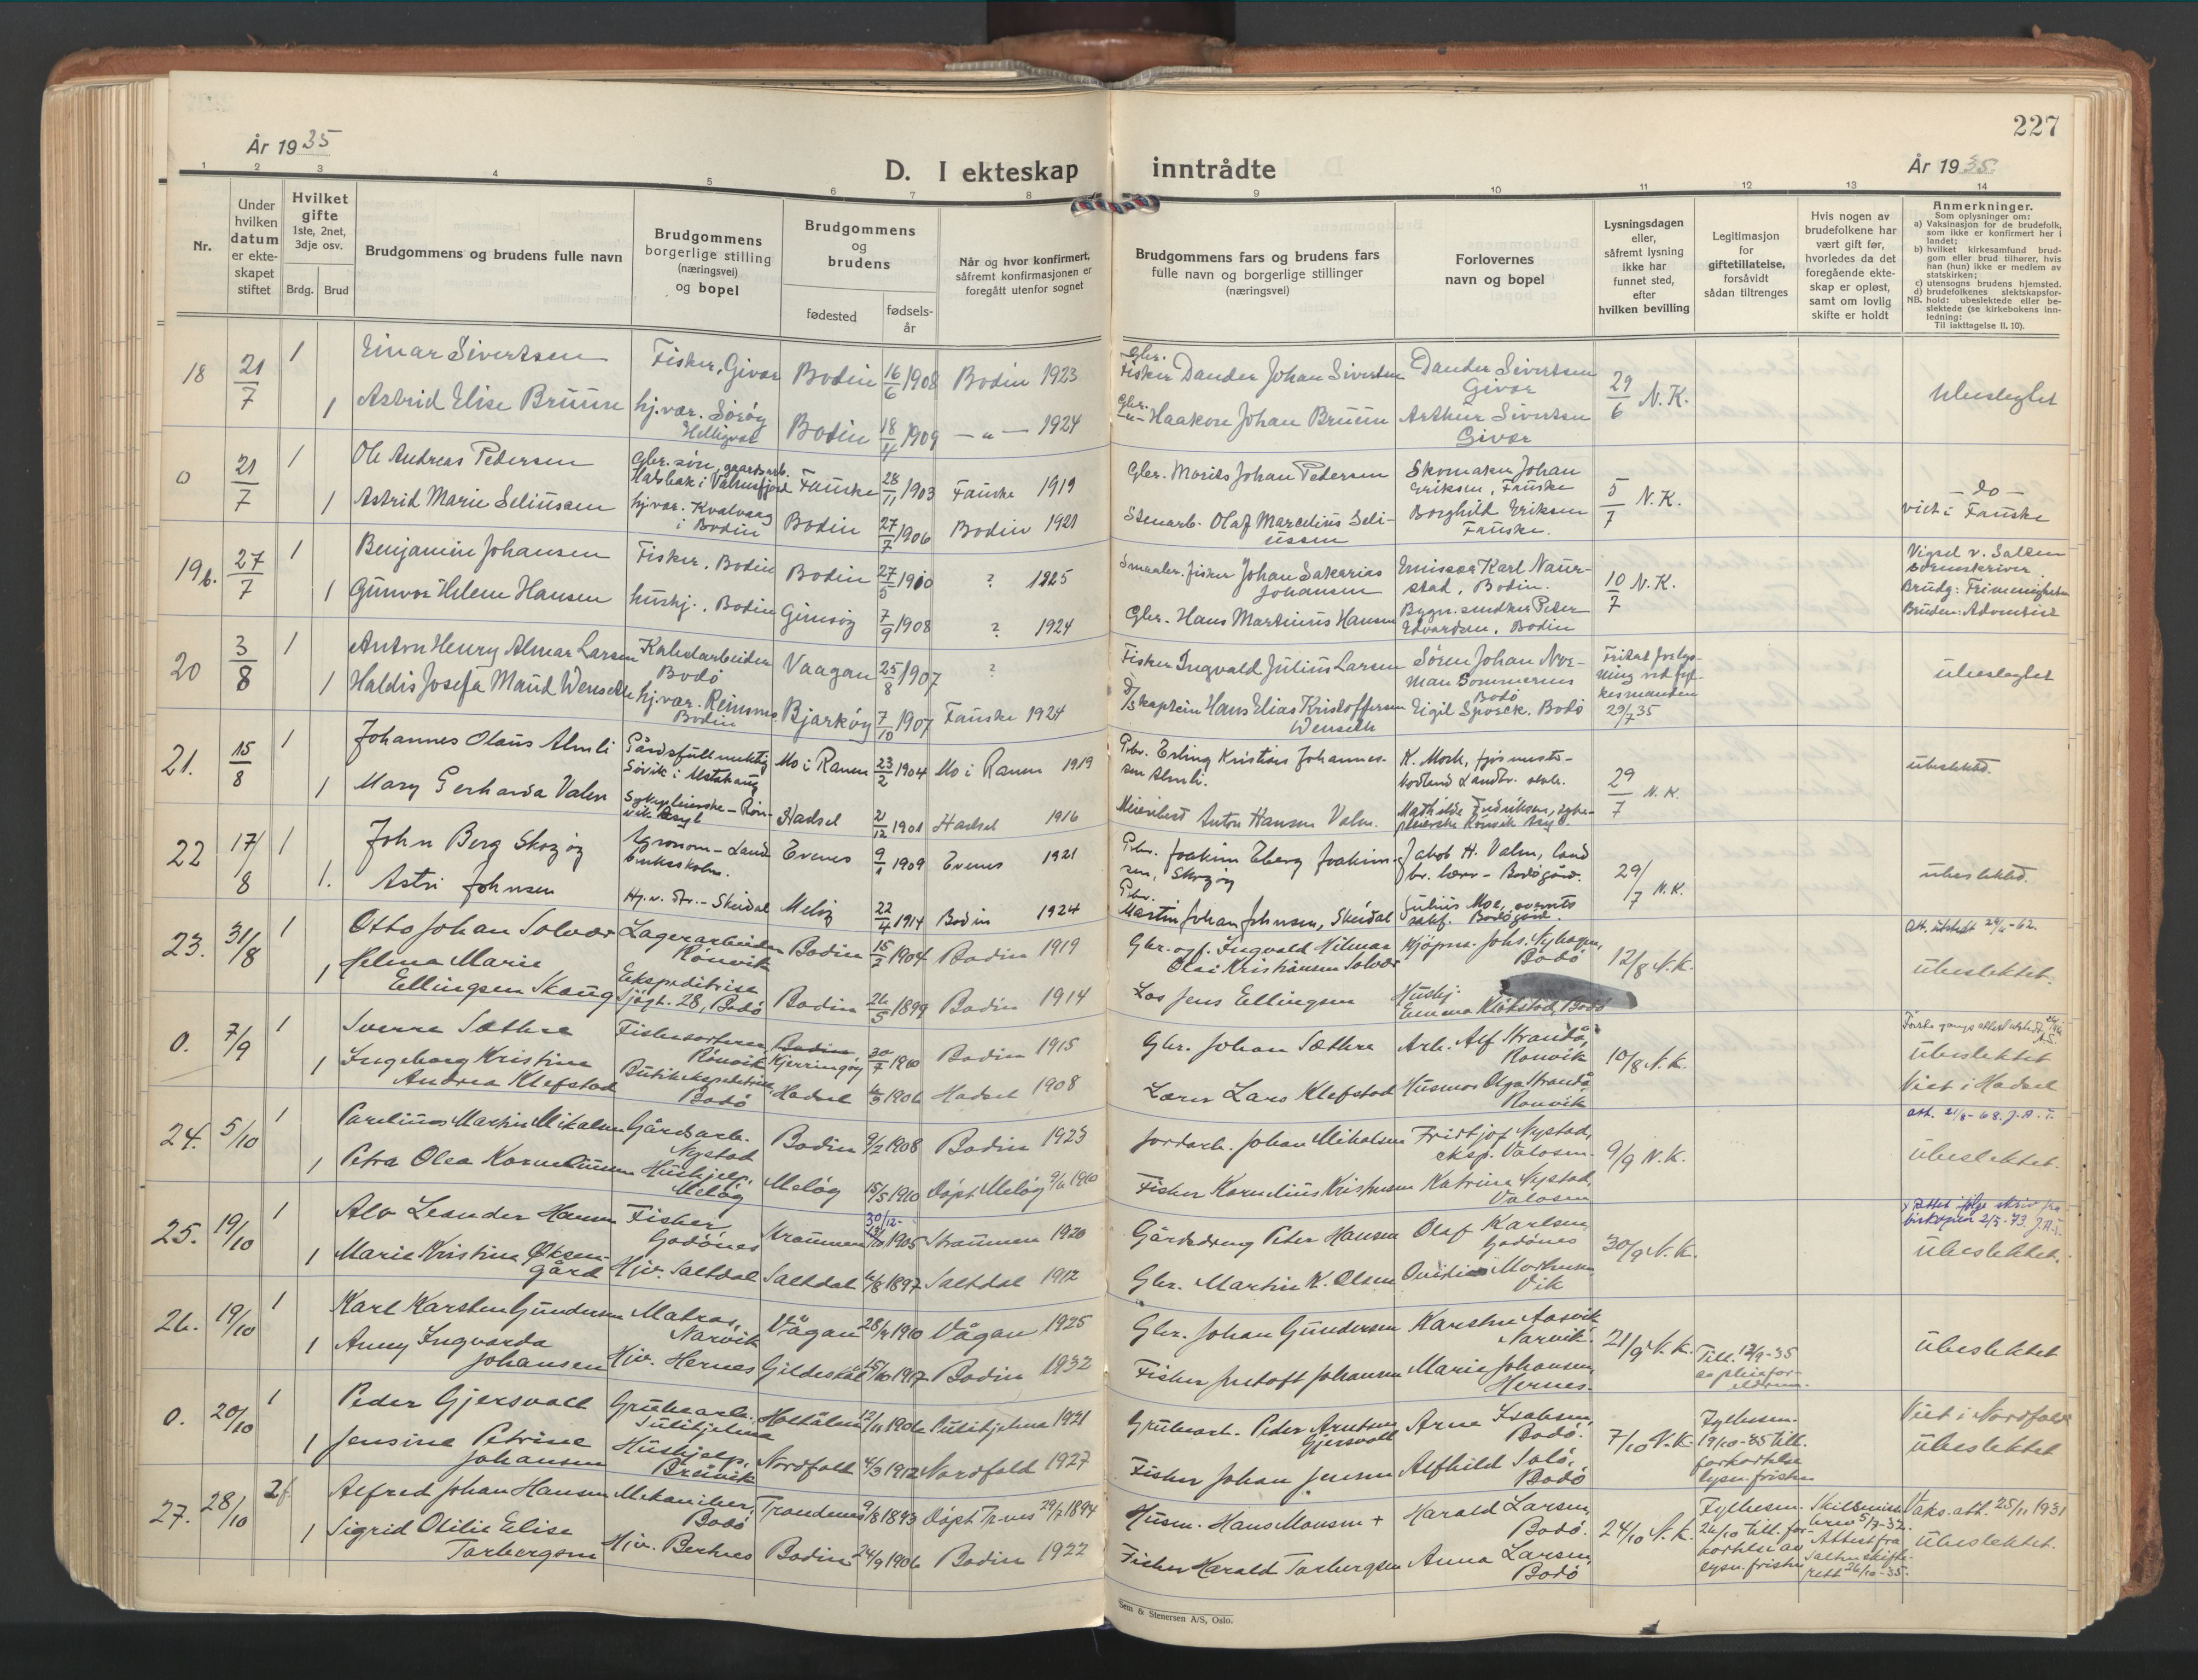 227
År 1935
År 1935.
D. I ekteskap inntrådte
1 2 3 4 5 6 7 8 9 10 11 12 13 14
Nr.
Under hvilken datum er ekteskapet stiftet
Hvilket gifte 1ste, 2net, 3dje osv.
Brdg. Brud
Brudgommens og brudens fulle navn
Brudgommens borgerlige stilling (næringsvei) og bopel
Brudgommens og brudens
fødested
fødsels-år
Når og hvor konfirmert, såfremt konfirmasjonen er foregått utenfor sognet
Brudgommens fars og brudens fars fulle navn og borgerlige stillinger (næringsvei)
Forlovernes navn og bopel
Lysningsdagen eller, såfremt lysning ikke har funnet sted, efter hvilken bevilling
Legitimasjon for giftetillatelse, forsåvidt sådan tiltrenges
Hvis nogen av brudefolkene har vært gift før, hvorledes da det foregående ekteskap er opløst, samt om lovlig skifte er holdt
Anmerkninger.
Som oplysninger om:
a) Vaksinasjon for de brudefolk, som ikke er konfirmert her i landet;
b) hvilket kirkesamfund brudgom eller brud tilhører, hvis han (hun) ikke er medlem av statskirken;
c) utensogns brudens hjemsted.
d) brudefolkenes slektskapsforhold: ubeslektede eller beslektede (se kirkebokens innledning:
NB. Til iakttagelse II. 10).
18 21/7 1 Einar Sivertsen Fisker, Givær Bodin 16/6 1908 Bodin 1923 Gbr. Fisker Dander Johan Sivertsen Dander Sivertsen Givær 29/6 N.K. Ubeslegtet
1 Astrid Elise Bruun hj.vær. Sørøy Helligvær Bodin 18/4 1909 — " — 1924 Gbr. Haakon Johan Bruun Arthur Sivertsen Givær
0 21/7 1 Ole Andreas Pedersen Gbr. søn, gaardsarb. i Valnesfjord Fauske 28/11 1903 Fauske 1919 Gbr. Morits Johan Pedersen Skomaker Johan Eriksen, Fauske 5/7 N.K. — do — viet i Fauske
1 Astrid Marie Seliussen hj.vær. Kvalvaag i Bodin Bodin 27/7 1906 Bodin 1921 Stenarb. Olaf Marcelius Seliussen Borghild Eriksen Fauske.
19b. 27/7 1 Benjamin Johansen Fisker, Bodin Bodin 27/5 1910 ? 1925 Smaabr. fisker Johan Sakarias Johansen Emissær Karl Naurstad, Bodin. 10/7 N.K. Vigsel v. Salten sorenskriver
1 Gunvor Helene Hansen hushj., Bodin Gimsøy 7/9 1908 ? 1924 Gbr. Hans Martinius Hansen Bygn.snedker Peter Edvardsen, Bodin Brudg: Frimenigheten Bruden: Adventist
20 3/8 1 Anton Henry Almar Larsen Kabelarbeider Bodø Vaagan 25/8 1907 ? Fisker Ingvald Julius Larsen Søren Johan Norman Sommernes Bodø Fritat for lysning ved fylkesmanden 29/7 35 ubeslegtet
1 Haldis Josefa Maud Wenselle hj.vær. Reinsnes Bodin Bjarkøy 7/10 1907 Fauske 1924 D/S kaptein Hans Elias Kristoffersen Wenselle Eigil Sposck. Bodø
21. 15/8 1 Johannes Olaus Almli Gårdsfullmektig Søvik i Alstahaug Mo i Ranen 23/2 1904 Mo i Ranen 1919 Gbr. Erling Kristian Johannessen Almli. K. Mosk, fjøsmester Nordland Landbr. skole. 29/7 N.K. ubeslektet.
1 Mary Gerharda Valen Sykepleierske - Rønvik Asyl Hadsel 21/12 1901 Hadsel 1916 Meieribest Anton Hansen Valen. Mathilde Fredriksen, sykepleierske Rønvik Asyl
22 17/8 1 John Berg Skogøy Agronom - Landbruksskolen. Evenes 9/1 1909 Evenes 1921 Gbr. Joakim Eberg Joakimsen, Skogøy Jakob H. Valen, landbr. lærer - Bodøgård. 29/7 N.K. ubeslektet.
1. Astri Johnsen Hj.v. dtr. - Skeidal Meløy 22/4 1914 Bodin 1924 Gbr. Martin Johan Johnsen, Skeidal Julius Moe, Bodøgård.
23. 31/8 1 Otto Johan Solvær Lagerarbeider Rønvik Bodin 15/2 1904 Bodin 1919 Gbr. og f. Ingvald Hilmar Olai Kristiansen Solvær Kjöpm. Johs. Nyhagen, Bodø 12/8 N.K. Att. utstedt 29/4-62. ubeslektet.
1 Helena Marie Ellingsen Skaug Ekspeditrise Sjøgt. 28, Bodø Bodin 26/5 1899 Bodin 1914 Los Jens Ellingsen Hushj. Emma Kløkstad, Bodø
0. 7/9 1 Sverre Sæthre Fiskesorterer Rønvik Kjerringøy 30/7 1900 Bodin 1915 Gbr. Johan Sæthre Arb. Alf Strandå, Rønvik 10/8 N.K. ubeslektet
1 Ingeborg Kristine Andrea Klefstad Butikekspeditrise, Bodø Hadsel 6/3 1906 Hadsel 1908 Lærer Lars Klefstad Husmor Olga Strandå Rønvik Viet i Hadsel
24. 5/10 1 Parelius Martin Mikalsen Gårdsarb. Nystad Bodin 9/2 1908 Bodin 1923 Jordarb. Johan Mikalsen Fridtjof Nystad, eksp. Valosen. 9/9 N.K. att. 21/8-68. J.A.T. ubeslektet.
1 Petra Olea Korneliussen Hushjelp, Meløy Meløy 15/5 1910 Døpt Meløy 9/6 1910 Fisker Kornelius Kristensen Katrine Nystad, Valosen
25. 19/10 1 Alv Leander Hansen Fisker, Godønes Straumen 30/12- 1905 Straumen 1920 Gårdsdreng Peter Hansen Olaf Karlsen, Godønes 30/9 N.K. Rettet ifølge skriv fra biskopen 2/5-73. J.A.T. ubeslektet.
1 Marie Kristine Øksengård Hjv. Saltdal Saltdal 6/8 1897 Saltdal 1912 Gbr. Martin K. Olsen Ovidia Morhus, Vik
26. 19/10 1 Karl Karsten Gundersen Matros, Narvik Vågan 28/4 1910 Vågan 1925 Gbr. Johan Gundersen Karsten Aasvik Narvik. 21/9 N.K. Till. 12/9-35 av pleieforeldrene. ubeslektet
1 Anny Ingvarda Johansen Hjv. Hernes Gildeskål 15/10 1917 Bodin 1932 Fisker Jentoft Johansen Marie Johansen, Hernes.
0. 20/10 1 Peder Gjersvoll Grubearb. Sulitjelma Holtålen 12/11 1906 Sulitjelma 1921 Grubearb. Peder Arntsen Gjersvoll Arne Isaksen, Bodø. 7/10 N.K. Fylkesm. 19/10-35 till. forkortelse lysn.fristen Viet i Nordfold ubeslektet
1 Jensine Petrine Johansen Hushjelp, Breivik Nordfold 4/3 1912 Nordfold 1927 Fisker Johan Jensen Alfhild Solø, Bodø
27. 28/10 2f Alfred Johan Hansen Mekaniker, Bodø Trondenes 9/8 1893 Døpt Tr-nes 29/7 1894 Husm. Hans Monsen + Harald Larsen, Bodø. 24/10 N.K. Fylkesm. 26/10 till. forkortelse av lysn.fristen Skilsmissebrev 5/7-32. Attest fra Salten skifterett 26/10-35. Vaks.att. 25/11 1931 ubeslektet.
1 Sigrid Otilie Elise Torbergsen Hjv. Bertnes Bodin 24/9 1906 Bodin 1922 Fisker Harald Torbergsen Anna Larsen, Bodø
Sem & Stenersen A/S, Oslo.